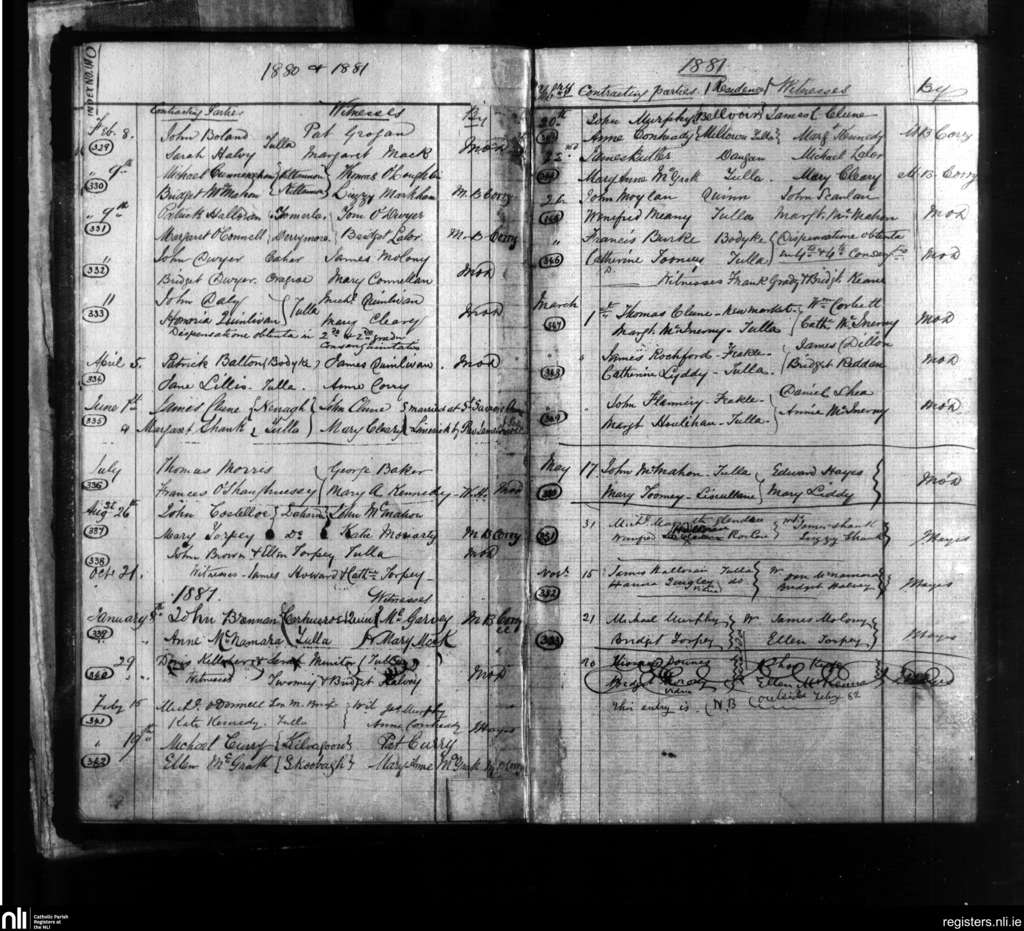 1880 & 1881
Contracting Parties Witnesses By
Feb. 8. John Boland Tulla Pat Grogan
329 Sarah Halvy Margaret Mack MOD
" 9th Michael Cunningham Thomas O'Loughlin
330 Bridget McMahon Lizzy Markham M.B Corry
" 9th Patrick Halloran Tomerla Tom O'Dwyer
331 Margaret O'Connell Derrymore Bedget Lalor M.B Corry
" John Dwyer Caher James Molony
332 Bridget Dwyer Cragroe Mary Connellan MOD
" John Daly Tulla Michl Quinlivan
333 Honoria Quinlivan Mary Cleary MOD
Dispensatione obtenta in 2nd & 2nd gradu
Consanguinitatis
April 5. Patrick Balton Bodyke James Quinlivan MOD
334 Jane Lillis Tulla Anne Corry
June 1st James Clune Nenagh John Clune married at St
335 Margaret Shank Tulla Mary Cleary Limerick by Rev James
July Thomas Morris George Baker
336 Frances O'Shaughnessy Mary A Kennedy MOD
Aug 26th John Costelloe John McMahon
337 Mary Torpey Do Kate Moriarty M B Corry
338 John Brown & Ellen Torpey Tulla MOD
Octr 21. Witnesses James Howard & Cathe Torpey
1881. Witnesses
January 8th John Brennan Quin Mc Garvey M B Corry
339 Anne McNamara Tulla & Mary Mack
29 Tulla
340 Witnesses Twomey & Bridget Halvey MOD
Feby 15 Michl O'Donnell Wit Jas Murphy
341 Kate Kennedy Tulla Anne Conheady JHayes
" 19th Michael Curry Kilvagoon Pat Curry
342 Ellen McGrath Mary Anne McGrath
INDEX NO.
1881.
Contracting parties Residence Witnesses By
20th John Murphy Bellvoir James C Clune
343 Anne Conheady Miltown Tulla Margt Kennedy M B Corry
22nd James Dangan Michael Lalor
344 Mary Anne McGrath Tulla Mary Cleary M B Corry
26 John Moylan Quinn John Scanlan
345 Winefred Meany Tulla Margt McMahon MOD
" Francis Burke Bodyke Dispensatione obtenta
346 Catherine Toomey Tulla in 4th & 4th Consang MOD
Witnesses Frank Grady & Bridgt Keane
March 1st Thomas Clune - Newmarket - Wm Corbett
347 Margt McInerny - Tulla Cathe McInerny MOD
James Rochford - Feakle - James Dillon
348 Catherine Lyddy - Tulla - Bridget Reddan MOD
John Flannery - Feakle - Daniel Shea
349 Margt Houlihan - Tulla - Annie McInerny MOD
May 17 John McMahon - Tulla Edward Hayes
350 Mary Toomey - Liscullane Mary Liddy MOD
31 Michl Glendree James Shank
351 Winefred Lizzy Shank JHayes
Novr. 15 James Halloran Tulla W John McNamara
352 Hanna Quigley do. Bridget Halvey JHayes
21 Michael Murphy W James Molony
353 Bridget Torpey Ellen Torpey JHayes
20 Downes
Bridget Ellen McNamara
This entry is N B outside Feby 82
nli Catholic Parish
Registers at
the NLI
registers.nli.ie